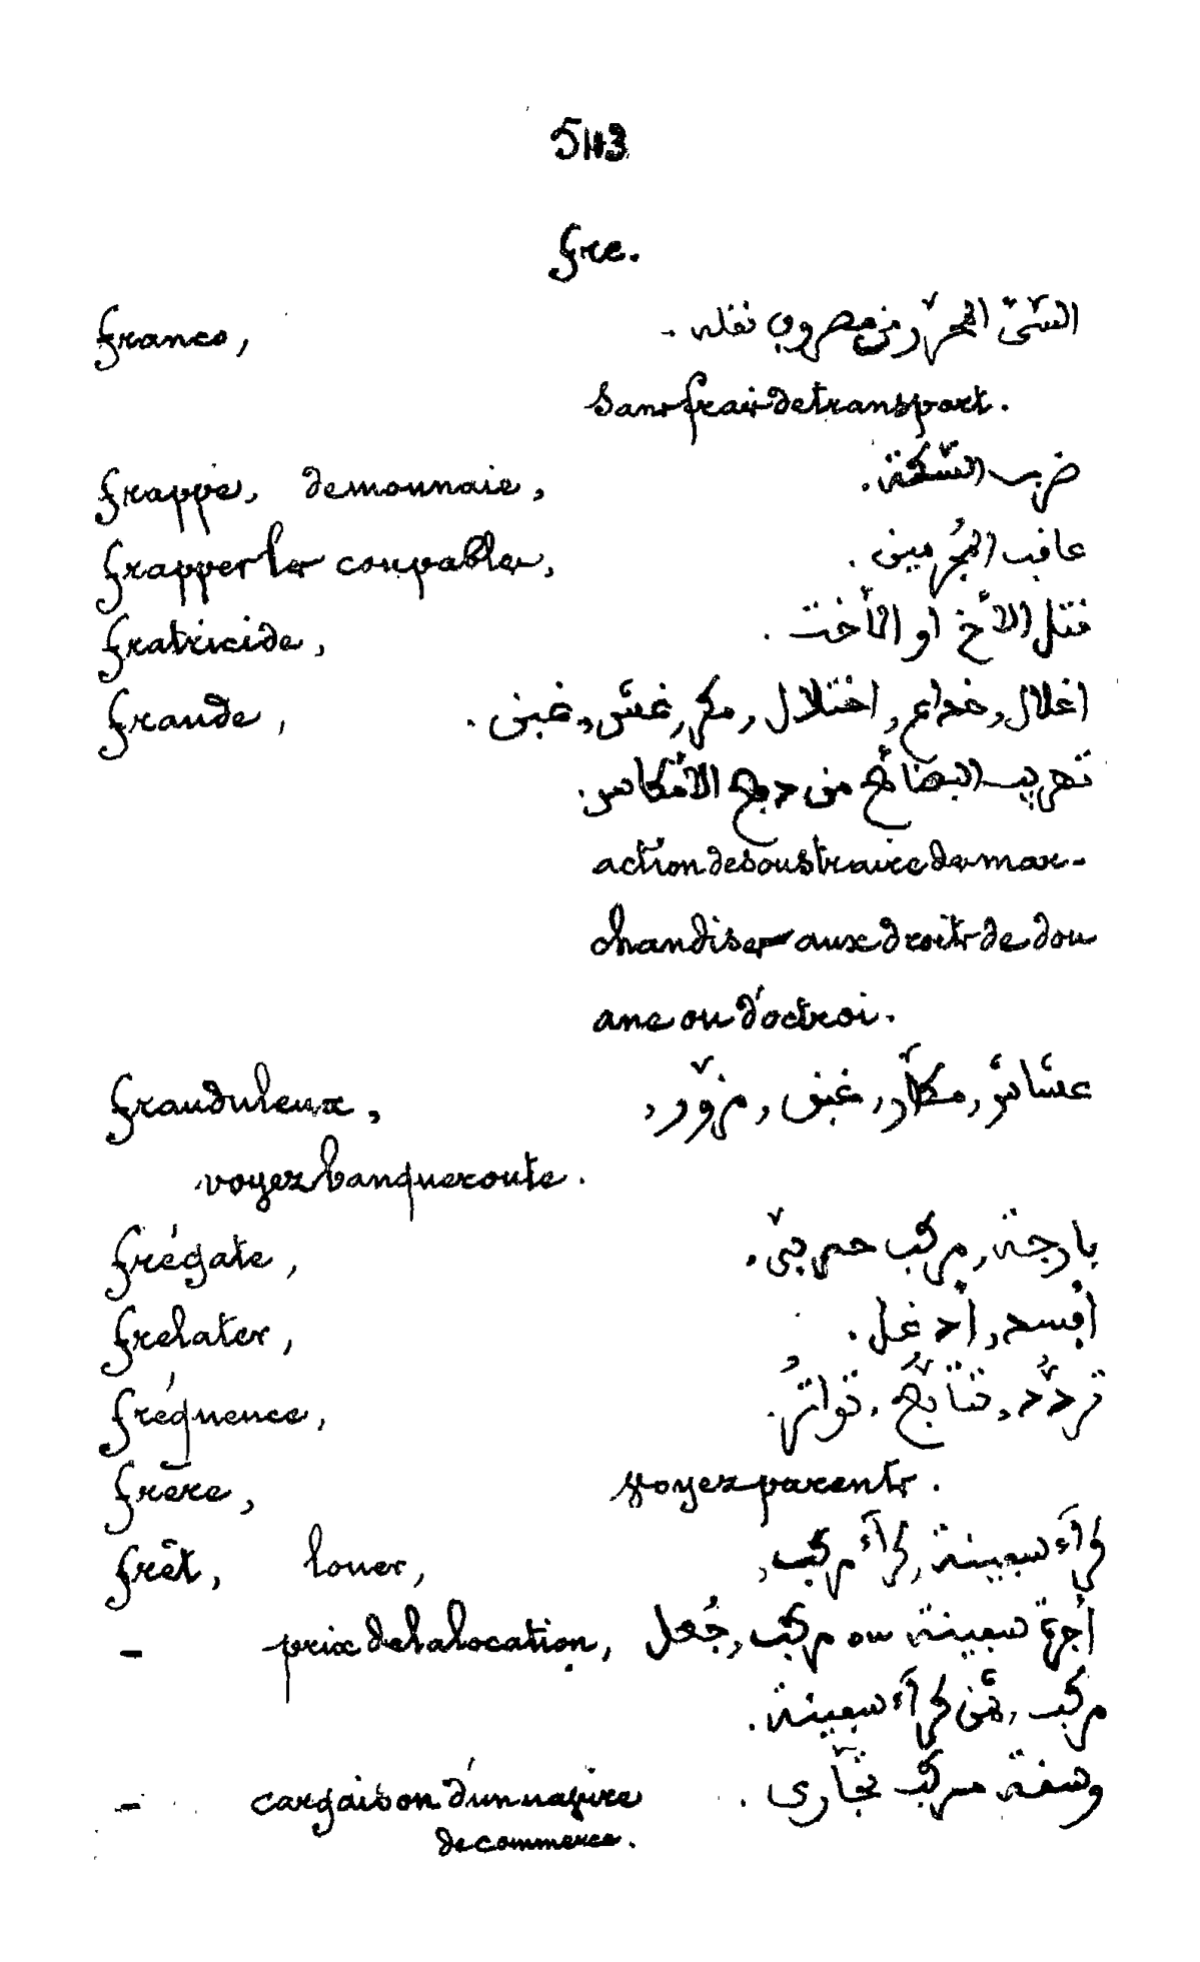 543
fre.
franco, الشّئ المحرّر من مصروف نقله.
sans frais de transport.
frappe, de monnaie, ضرب السّكّة.
frapper les coupables, عاقب المُجرمين.
fratricide, قتل الأخ او الأخت.
fraude, اغلال, خداع, اختلال, مكر, غشّ, غبن.
تهريب البضائع من دفع الأمكاس.
action de soustraire des mar-
chandises aux droits de dou
ane ou d'octroi.
frauduleux, غشّاش, مكّار, غبن, مزوّر,
voyez banqueroute.
frégate, بارجة, مركب حربيّ.
frelater, أفسد, أدغل.
fréquence, تردّد, تتابُع, تواتُر.
frère, voyez parents.
frêt, louer, كرآء سفينة, كرآء مركب,
- prix de la location, أُجرة سفينة ou مركب, جُعل
مركب, ثمن كرآء سفينة.
- cargaison d'un navire وسقة مركب تجّاري.
de commerce.